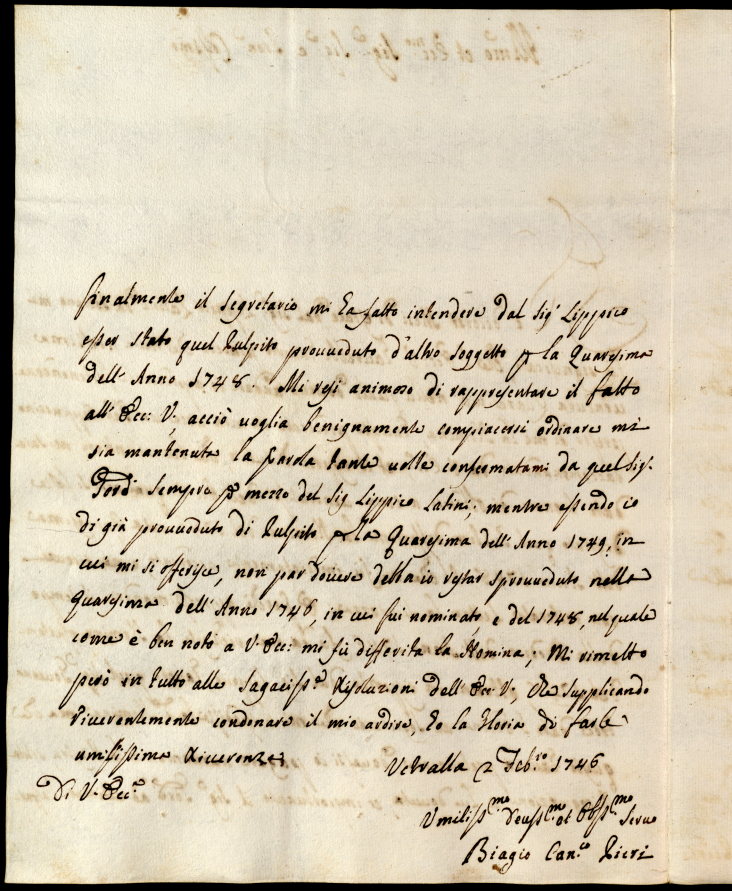 finalmente il segretario mi ha fatto intendere dal Sig.r Lippico
esser stato quel Pulpito provveduto d'altro soggetto p la Quaresima
dell'Anno 1748. Mi resi animoso di rappresentare il fatto
all'Ecc: V., acciò voglia benignamente compiacersi ordinare mi
sia mantenuta la parola tante volte confermatami da quel Sig.r
sempre p mezzo del Sig Lippico Latini; mentre essendo io
di già provveduto di Pulpito p la Quaresima dell'Anno 1749, in
cui mi si offerisce, non par dovere debba io restar sprovveduto nella
Quaresima dell'Anno 1746, in cui fui nominato e del 1748, nel quale
come è ben noto a V. Ecc: mi fù differita la Nomina; Mi rimetto
però in tutto alle sagaciss.e Risoluzioni dell'Ecc: V., che supplicando
riverentemente condonare il mio ardire, ho la Gloria di farle
umilissima Riverenza
Vetralla 2 Feb.ro 1746
Di V. Ecc.a
Umiliss.mo Deuss.mo et Obss.mo Servo
Biagio Can.co Pieri